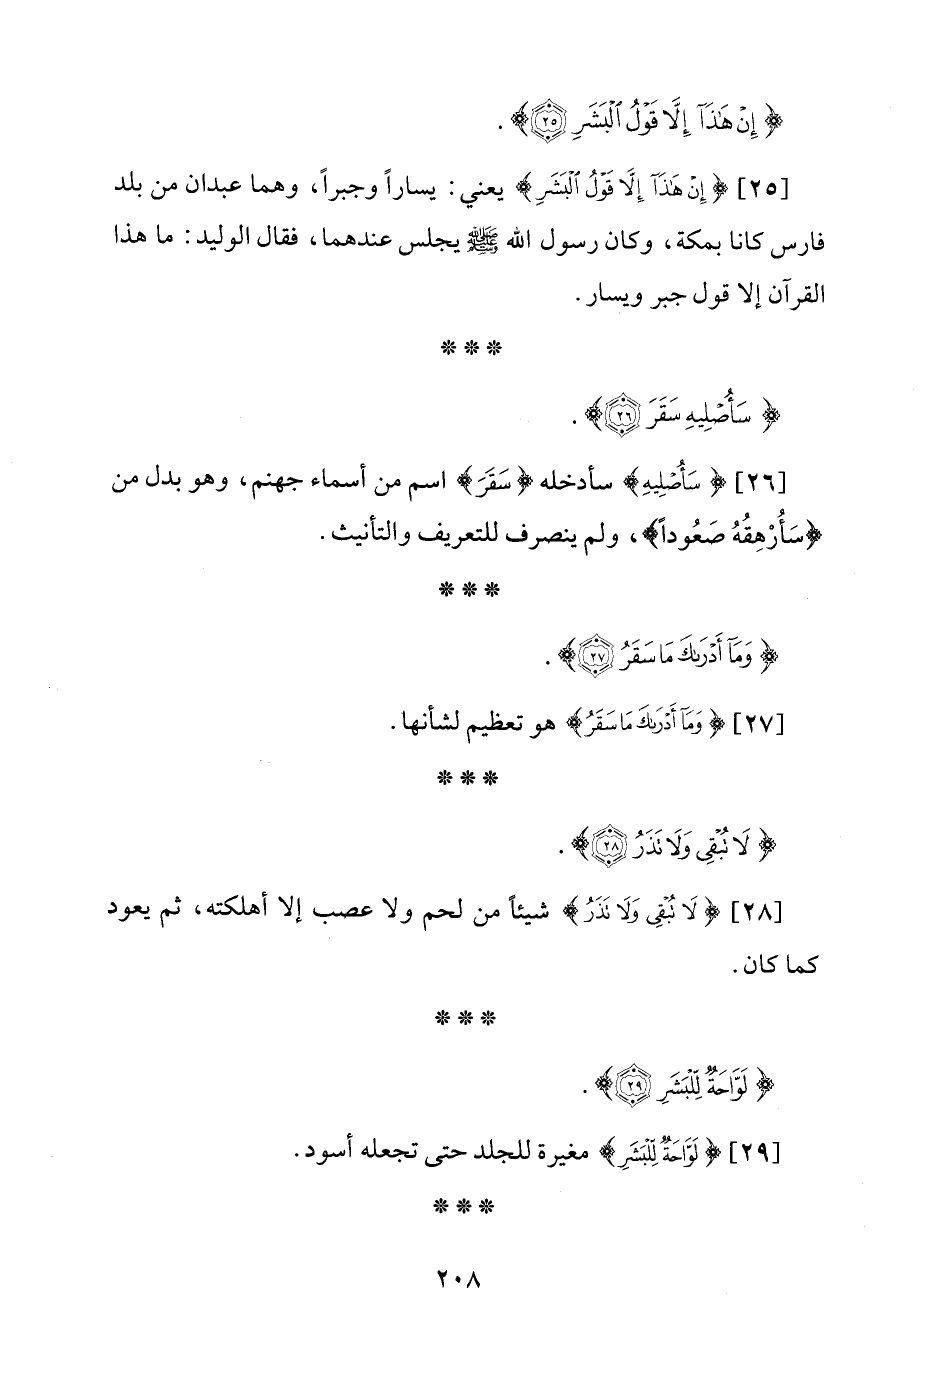 ﴿ إِنْ هَٰذَآ إِلَّا قَوْلُ ٱلْبَشَرِ ٢٥ ﴾ .
[٢٥] ﴿ إِنْ هَٰذَآ إِلَّا قَوْلُ ٱلْبَشَرِ ﴾ يعني: يساراً وجبراً، وهما عبدان من بلد
فارس كانا بمكة، وكان رسول الله ﷺ يجلس عندهما، فقال الوليد: ما هذا
القرآن إلا قول جبر ويسار.
* * *
﴿ سَأُصْلِيهِ سَقَرَ ٢٦ ﴾ .
[٢٦] ﴿ سَأُصْلِيهِ ﴾ سأدخله ﴿ سَقَرَ ﴾ اسم من أسماء جهنم، وهو بدل من
﴿سَأُرْهِقُهُ صَعُوداً﴾، ولم ينصرف للتعريف والتأنيث.
* * *
﴿ وَمَآ أَدْرَىٰكَ مَا سَقَرُ ٢٧ ﴾ .
[٢٧] ﴿ وَمَآ أَدْرَىٰكَ مَا سَقَرُ ﴾ هو تعظيم لشأنها.
* * *
﴿ لَا تُبْقِى وَلَا تَذَرُ ٢٨ ﴾ .
[٢٨] ﴿ لَا تُبْقِى وَلَا تَذَرُ ﴾ شيئاً من لحم ولا عصب إلا أهلكته، ثم يعود
كما كان.
* * *
﴿ لَوَّاحَةٌ لِّلْبَشَرِ ٢٩ ﴾ .
[٢٩] ﴿ لَوَّاحَةٌ لِّلْبَشَرِ ﴾ مغيرة للجلد حتى تجعله أسود.
* * *
٢٠٨